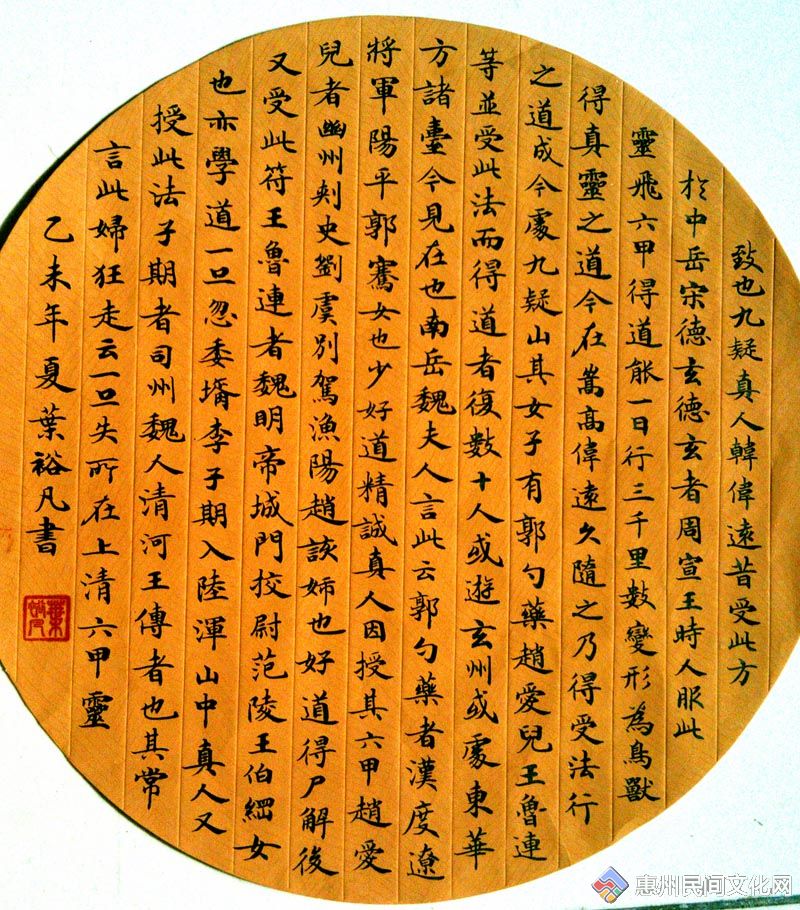 致也九疑真人韓偉遠昔受此方
於中岳宋德玄德玄者周宣王時人服此
靈飛六甲得道能一日行三千里數變形為鳥獸
得真靈之道今在嵩高偉遠久隨之乃得受法行
之道成今處九疑山其女子有郭勺藥趙愛兒王魯連
等並受此法而得道者復數十人或遊玄州或處東華
方諸臺今見在也南岳魏夫人言此云郭勺藥者漢度遼
將軍陽平郭騫女也少好道精誠真人因授其六甲趙愛
兒者幽州刾史劉虞別駕漁陽趙該姉也好道得尸解後
又受此符王魯連者魏明帝城門挍尉范陵王伯綱女
也亦學道一旦忽委壻李子期入陸渾山中真人又
授此法子期者司州魏人清河王傳者也其常
言此婦狂走云一旦失所在上清六甲靈
乙未年夏葉裕凡書
惠州民间文化网